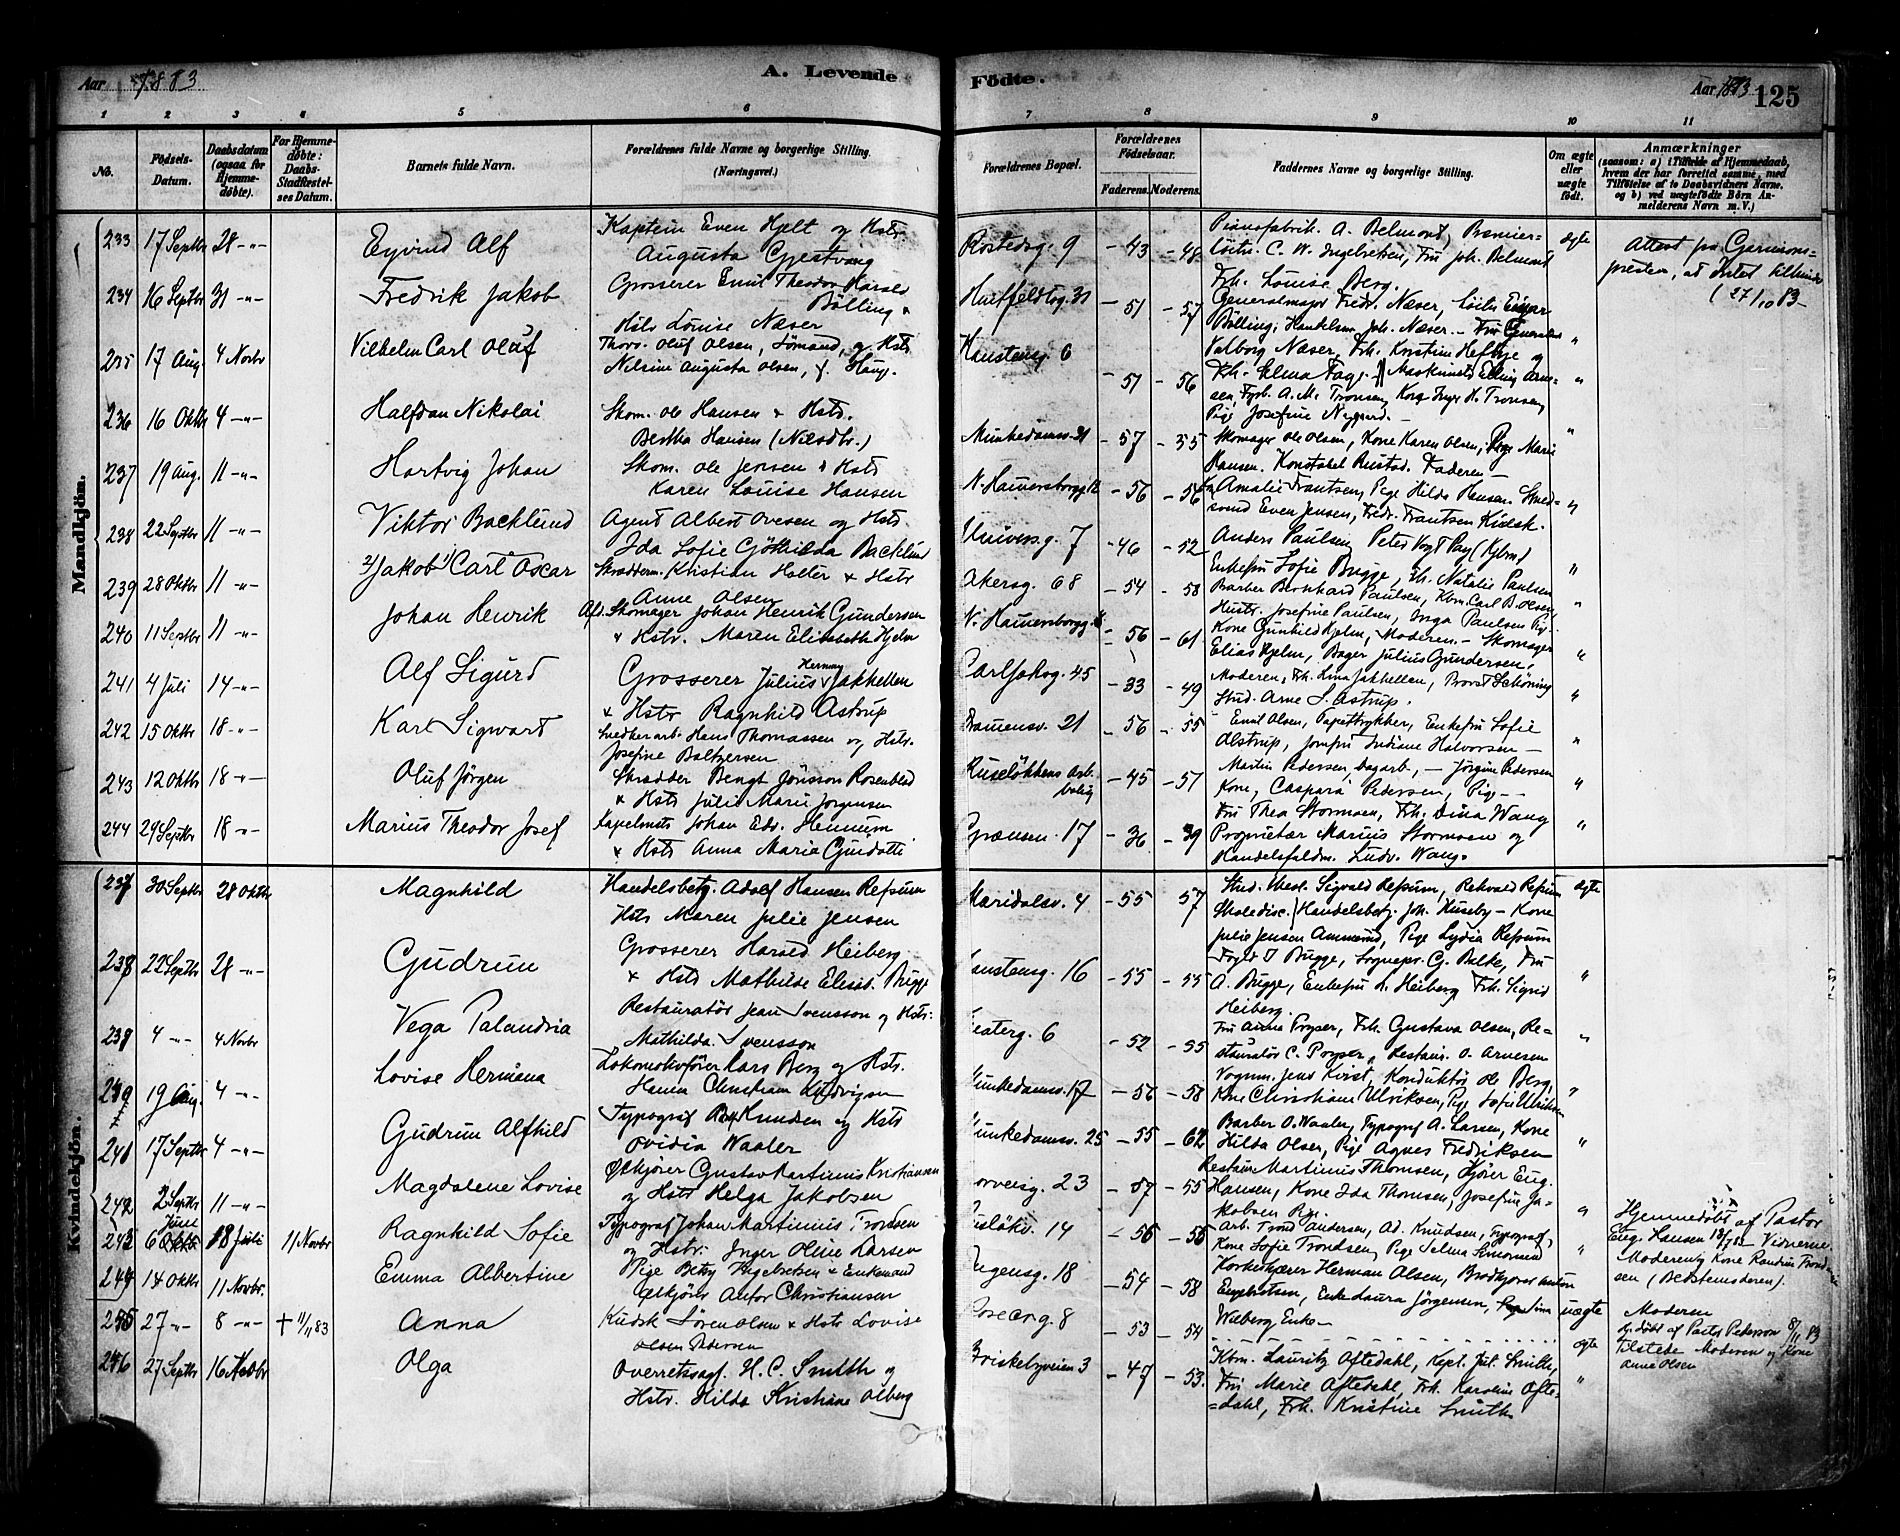 Aar 1883
A. Levende
Födte.
Aar 1883
125
1 2 3 4 5 6 7 8 9 10 11
No.
Födsels-
Datum.
Daabsdatum
(ogsaa for
Hjemme-
døbte).
For Hjemme-
døbte:
Daabs-
Stadfæstel-
ses Datum.
Barnets fulde Navn.
Forældrenes fulde Navne og borgerlige Stilling.
(Næringsvei.)
Forældrenes Bopæl.
Forældrenes
Fødselsaar.
Faderens. Moderens.
Faddernes Navne og borgerlige Stilling.
Om ægte
eller
uægte
født.
Anmærkninger
(saasom: a) i Tilfælde af Hjemmedaab,
hvem der har forrettet samme, med
Tilføielse af to Daabsvidners Navne.
og b) ved uægtefødte Börn An-
melderens Navn m. V.)
Mandkjön.
233 17 Septbr 28 -"-
Eyvind Alf
Kaptein Even Hjelt og Hstr
Augusta Gjestvang
9 - 43 - 48
Pianofabrik. A. Belmont, Premier-
löitn. C. W. Ingebretsen, Fru Joh. Belmont
Frk. Louise Berg.
ægte
Attest fra Garnisons-
presten, at Intet tilhinder
27/10 83
234 16 Septbr 31 -"-
Fredrik Jakob
Grosserer Emil Theodor Harald
Bölling &
Hstr Louise Næser
Huitfeldtsg. 31 - 51 - 57
Generalmajor Fredr. Næser, Löitn Einar
Bölling, Handelsm. Joh. Næser. - Fru Generalinde
Valborg Næser, Frk. Kristine Heftye og
Frk. Elma Fage.
"
235 17 Aug. 4 Novbr
Vilhelm Carl Oluf
Thorv. Oluf Olsen, Sömand, og Hstr
Nilsine Augusta Olsen, f. Haug.
Hanstensg. 6 - 51 - 56
Maskinmstr Elling Arne-
sen, Fyrb. A. M. Tronsen, Kone Inger H. Tronsen,
Pige Josefine Nygaard.
"
236 16 Oktbr 4 -"-
Halfdan Nikolai
Skom. Ole Hansen & Hstr.
Bertha Hansen (Nilsdtr.)
Munkedamsv. 31 - 57 - 55
Skomager Ole Olsen, Kone Karen Olsen, Pige Marie
Hansen. Konstabel Rustad. Faderen -
"
237 19 Aug. 11 -"-
Hartvig Johan
Skom. Ole Jensen & Hstr
Karen Louise Hansen
N. Hammersborgg 12 - 56 - 56
Amalie Frantsen, Pige Hilda Hansen. Smed-
svend Even Jensen, Fredr. Frantsen Kudsk.
"
238 22 Septbr 11 -"-
Viktor Backlund
Agent Albert Ovesen og Hstr
Ida Sofie Göthilda Backlund
Universg. 7 - 46 - 52
Anders Paulsen, Peter Vogt Pay (Kjbm)
Enkefru Sofie Brygge, Frk. Natalie Paulsen
"
239 28 Oktbr 11 -"-
2/ Jakob 1/ Carl Oscar
Skrædderm. Kristian Holter & Hstr
Anne Olsen
Akersg. 68 - 54 - 58
Barber Bernhard Paulsen, Kbm. Carl B. Olsen
Hustr. Josefine Paulsen, Inga Paulsen Pig.
"
240 11 Septbr 11 -"-
Johan Henrik
Afd. Skomager Johan Henrik Gundersen
& Hstr. Maren Elisabeth Hjelm
N. Hammersborgg - 56 - 61
Kone Gunhild Hjelm, Moderen. - Skomager
Elias Hjelm, Bager Julius Gundersen.
"
241 4 Juli 14 -"-
Alf Sigurd
Grosserer Julius Herman Jakhellen
& Hstr Ragnhild Astrup
Carl Johsg. 45 - 33 - 49
Moderen, Frk. Lina Jakhellen, Provst Schöning
Stud. Arne S. Astrup.
"
242 15 Oktbr 18 -"-
Karl Sigwart
Snedkerarb. Hans Thomassen og Hstr.
Josefine Baltzersen
21 - 56 - 55
Emil Olsen, Tapettrykker, Enkefru Sofie
Alstrup, Jomfru Indiane Halvorsen -
"
243 12 Oktbr 18 -"-
Oluf Jörgen
Skrædder Bengt Jönsson Rosenblad
& Hstr Julie Marie Jorgensen
Ruselökkens arb.
bolig - 45 - 57
Martin Pedersen, Dagarb., - Jörgine Pedersen
Kone, Caspara Pedersen, Pig. - -
"
244 29 Septbr 18 -"-
Marius Theodor Josef
Kapelmstr Johan Edv. Hennum
& Hstr Anna Maria Guidotti
Grænsen. 17 - 36 - 39
Fru Thea Stormoen, Frk. Dina Wang
Proprietær Marius Stormoen og
Handelsfuldm. Ludv. Wang.
"
Kvindekjön.
237 30 Septbr 28 Oktbr
Magnhild
Handelsbetj. Adolf Hansen Refsum
Hstr Maren Julie Jensen
Maridalsv. 4 - 55 57
Stud. theol. Sigvald Refsum, Rekvald Refsum
Skoledisc. / Handelsbetj. Joh. Huseby - Kone
Julie Jensen Ammund, Pige Lydia Refsum
ægte
238 22 Septbr 28 -"-
Gudrun
Grosserer Harald Heiberg
& Hstr Mathilde Elisab. Brygge
anstensg. 16 - 55 - 55
Foged I Bugge, Sognepr. G. Balke, Fru
A. Brygge, Enkefru A. Heiberg Frk. Sigrid
Heiberg.
"
239 4 -"- 4 Novbr
Vega Palandria
Restauratör Jean Svensson og Hstr.
Mathilda Svensson
eaterg. 6 - 52 - 55
Fru Anna Pryser, Frk. Gustava Olsen, Re-
stauratör C. Pryser, Restaur. O. Arnesen
"
240 19 Aug. 4 -"-
Lovise Hermana
Lokomotivförer Lars Berg og Hstr.
Hanna Christiane Ludvigsen
unkedamsv. 17 - 56 - 58
Vognm. Jens Kvist, Konduktör Ole Berg,
Kone Christiane Ulriksen, Pige Sofie Ulriksen
"
241 17 Septbr 4 -"-
Gudrun Alfhild
Typograf Knudsen og Hstr
Ovidia Waaler
unkedamsv. 25 - 55 - 62
Barber O. Waaler, Typograf A. Larsen, Kone
Hilda Olsen, Pige Agnes Fredriksen
"
242 2 Septbr 11 -"-
Magdalene Lovise
Ölkjörer Gustav Martinius Kristiansen
og Hstr Helga Jakobsen
orveisg. 23 - 57 - 55
Restaur Martinus Thomsen, Kjörer Eug.
Hansen, Kone Ida Thomsen, Josefine Ja-
kobsen Pig.
"
243 6 Juni 18 Juli 11 Novbr
Ragnhild Sofie
Typograf Johan Martinius Trondsen
og Hstr. Inger Oline Larsen
uslökv. 14 - 56 - 55
Arb. Trond Andersen, Ad. Knudsen, Typograf,
Kone Sofie Trondsen, Pige Selma Simonsen
"
Hjemmedöbt af Pastor
Eug. Hansen 18/7 83 Vidnerne
Moderen og Kone Randine Trond-
sen (Bedstemoderen).
244 14 Oktbr 11 Novbr.
Emma Albertine
Pige Betzy Ingebretsen & Enkemand
Ölkjörer Anton Christiansen
ugensg. 18 - 54 - 58
Korkeskjærer Herman Olsen, Brödkjörer Anton
Engebretsen, Enke Laura Jörgensen, Sina
Walberg Enke -
uægte
Moderen
245 27 -"- 8 -"- † 11/11 83
Anna
Kudsk Sören Olsen & Hstr Lovise
Olsen Pedersen
osecrg. 8 - 53 - 54
ægte
Hj. döbt af Pastor Pedersen 8/11 83
Tilstede Moderen og Kone
Anne Olsen
246 27 Septbr 16 Novbr
Olga
Overretssagf. H. C. Smith og
Hstr. Hilda Kristiane Olberg
Briskebyveien 3 - 47 - 53.
Kbm. Lauritz Oftedahl, Kapt. Jul. Smith,
Fru Marie Oftedahl, Frk. Karoline Ofte-
=dahl, Frk. Kristine Smith
"